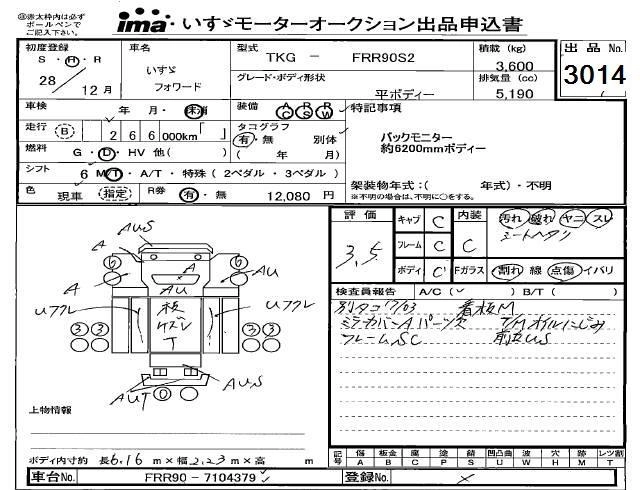 ㊟赤太枠内は必ず
ボールペンで
ご記入下さい。
ima いすゞモーターオークション出品申込書
初度登録
S・H・R
28 12月
車名
いすゞ
フォワード
型式
TKG － FRR90S2
グレード・ボディ形状
平ボディー
積載 (kg)
3,600
排気量 (cc)
5,190
出品No.
3014
車検 年 月・抹消
装備 AC RS RW
特記事項
走行 B 2 6 6 000km「 」
タコグラフ
有・無 別体
( 年 月)
バックモニター
約6200mmボディー
燃料 G・D・HV 他( )
シフト 6 M/T・A/T・特殊 (2ペダル・3ペダル)
色 現車 指定 R券 有・無 12,080 円
架装物年式:( 年式)・不明
※不明の場合は、不明に○をする。
評価
3.5
キャブ C
フレーム C
ボディ C'
内装 C
汚れ 破れ ヤニ スレ
シートヘタリ
Fガラス 割れ 線 点傷 イバリ
検査員報告 A/C( ✓ ) B/T( )
別タコ 17/03 看板M
ミラーカバーAパーツ欠 T/Mオイルにじみ
フレームSC
AUS
A
A
A
AU
AU
Uフクレ
Uフクレ
板
ｹズレ
T
6
6
3 3
3 3
AUS
AUT
0
上物情報
ボディ内寸約 長6.16 m×幅2.23m×高 m
記号 傷A 板金B 腐C 塗P 錆S 凹凸曲U 波W 穴H 跡M レツ割T
車台No. FRR90 - 7104379
登録No. ×